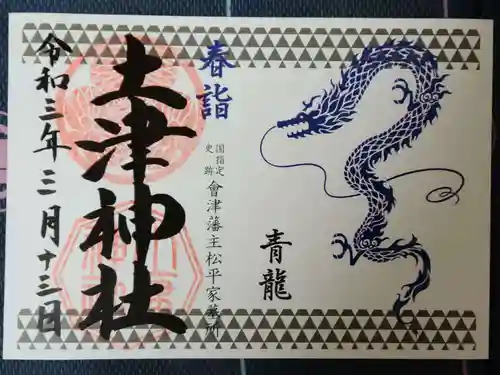 春詣
青龍
国指定
史跡
會津藩主松平家墓所
土津神社
令和三年三月十三日